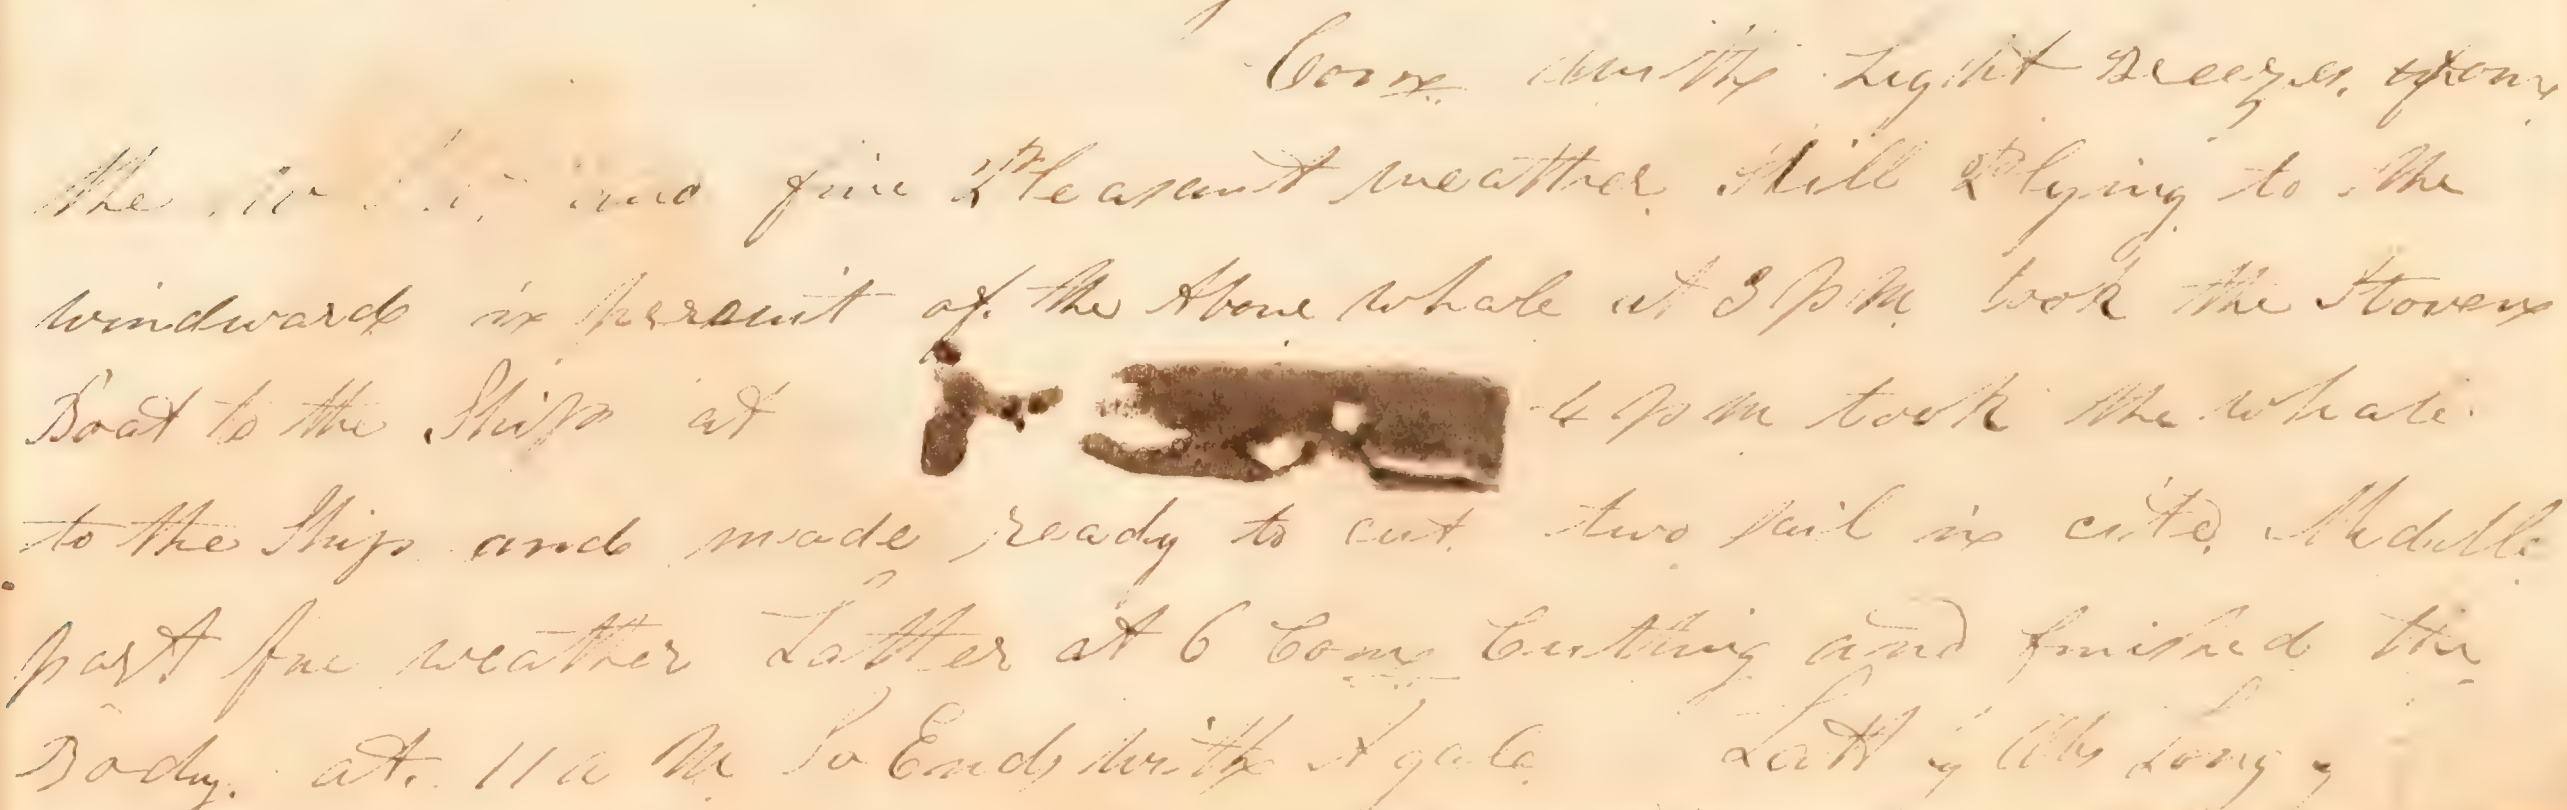 Come with Light Breezes from
the and fine Pleasant weather Still Plying to the
windward in persuit of the Above whale at 3 pm took the Stoven
Boat to the Ship at 4 pm took the whale
to the Ship and made ready to cut. two sail in cite Middle
part fine weather Latter at 6 Com Cutting and finished the
Body. at. 11 a M So Ends with A gale Latt Long